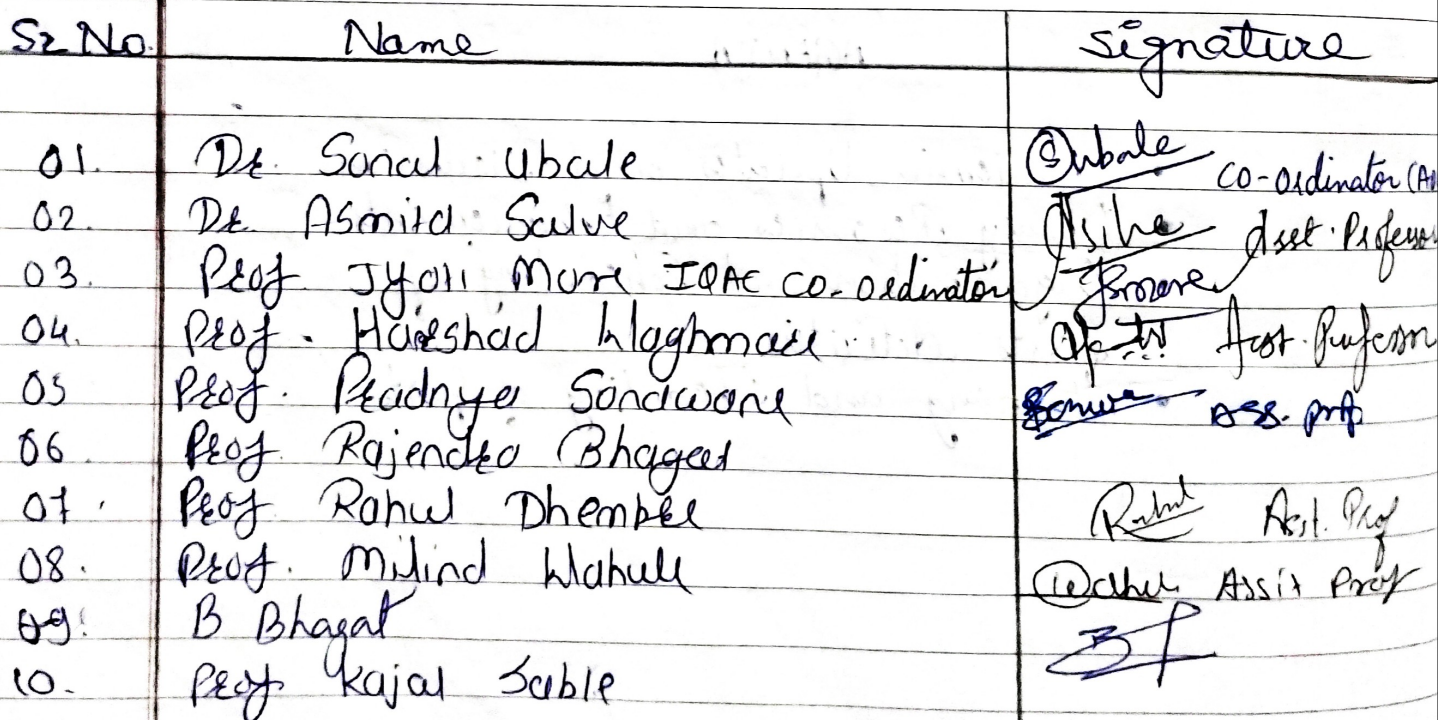 Sr No. Name Signature
01. Dr. Sonal Ubale Subale Co-ordinator (A
02. Dr. Asmita Salve Asst. Professor
03. Prof Jyoti More IQAC Co-ordinator Jmore
04. Prof. Harshad Waghmare Asst. Professor
05 Prof. Pradnya Sonawane Ass. prof
06. Prof. Rajendra Bhagat
07. Prof Rahul Dhembre Rahul Asst. Prof
08. Prof. Milind Wahule Assit Prof
09. B Bhagat
10. Prof Kajal Sable